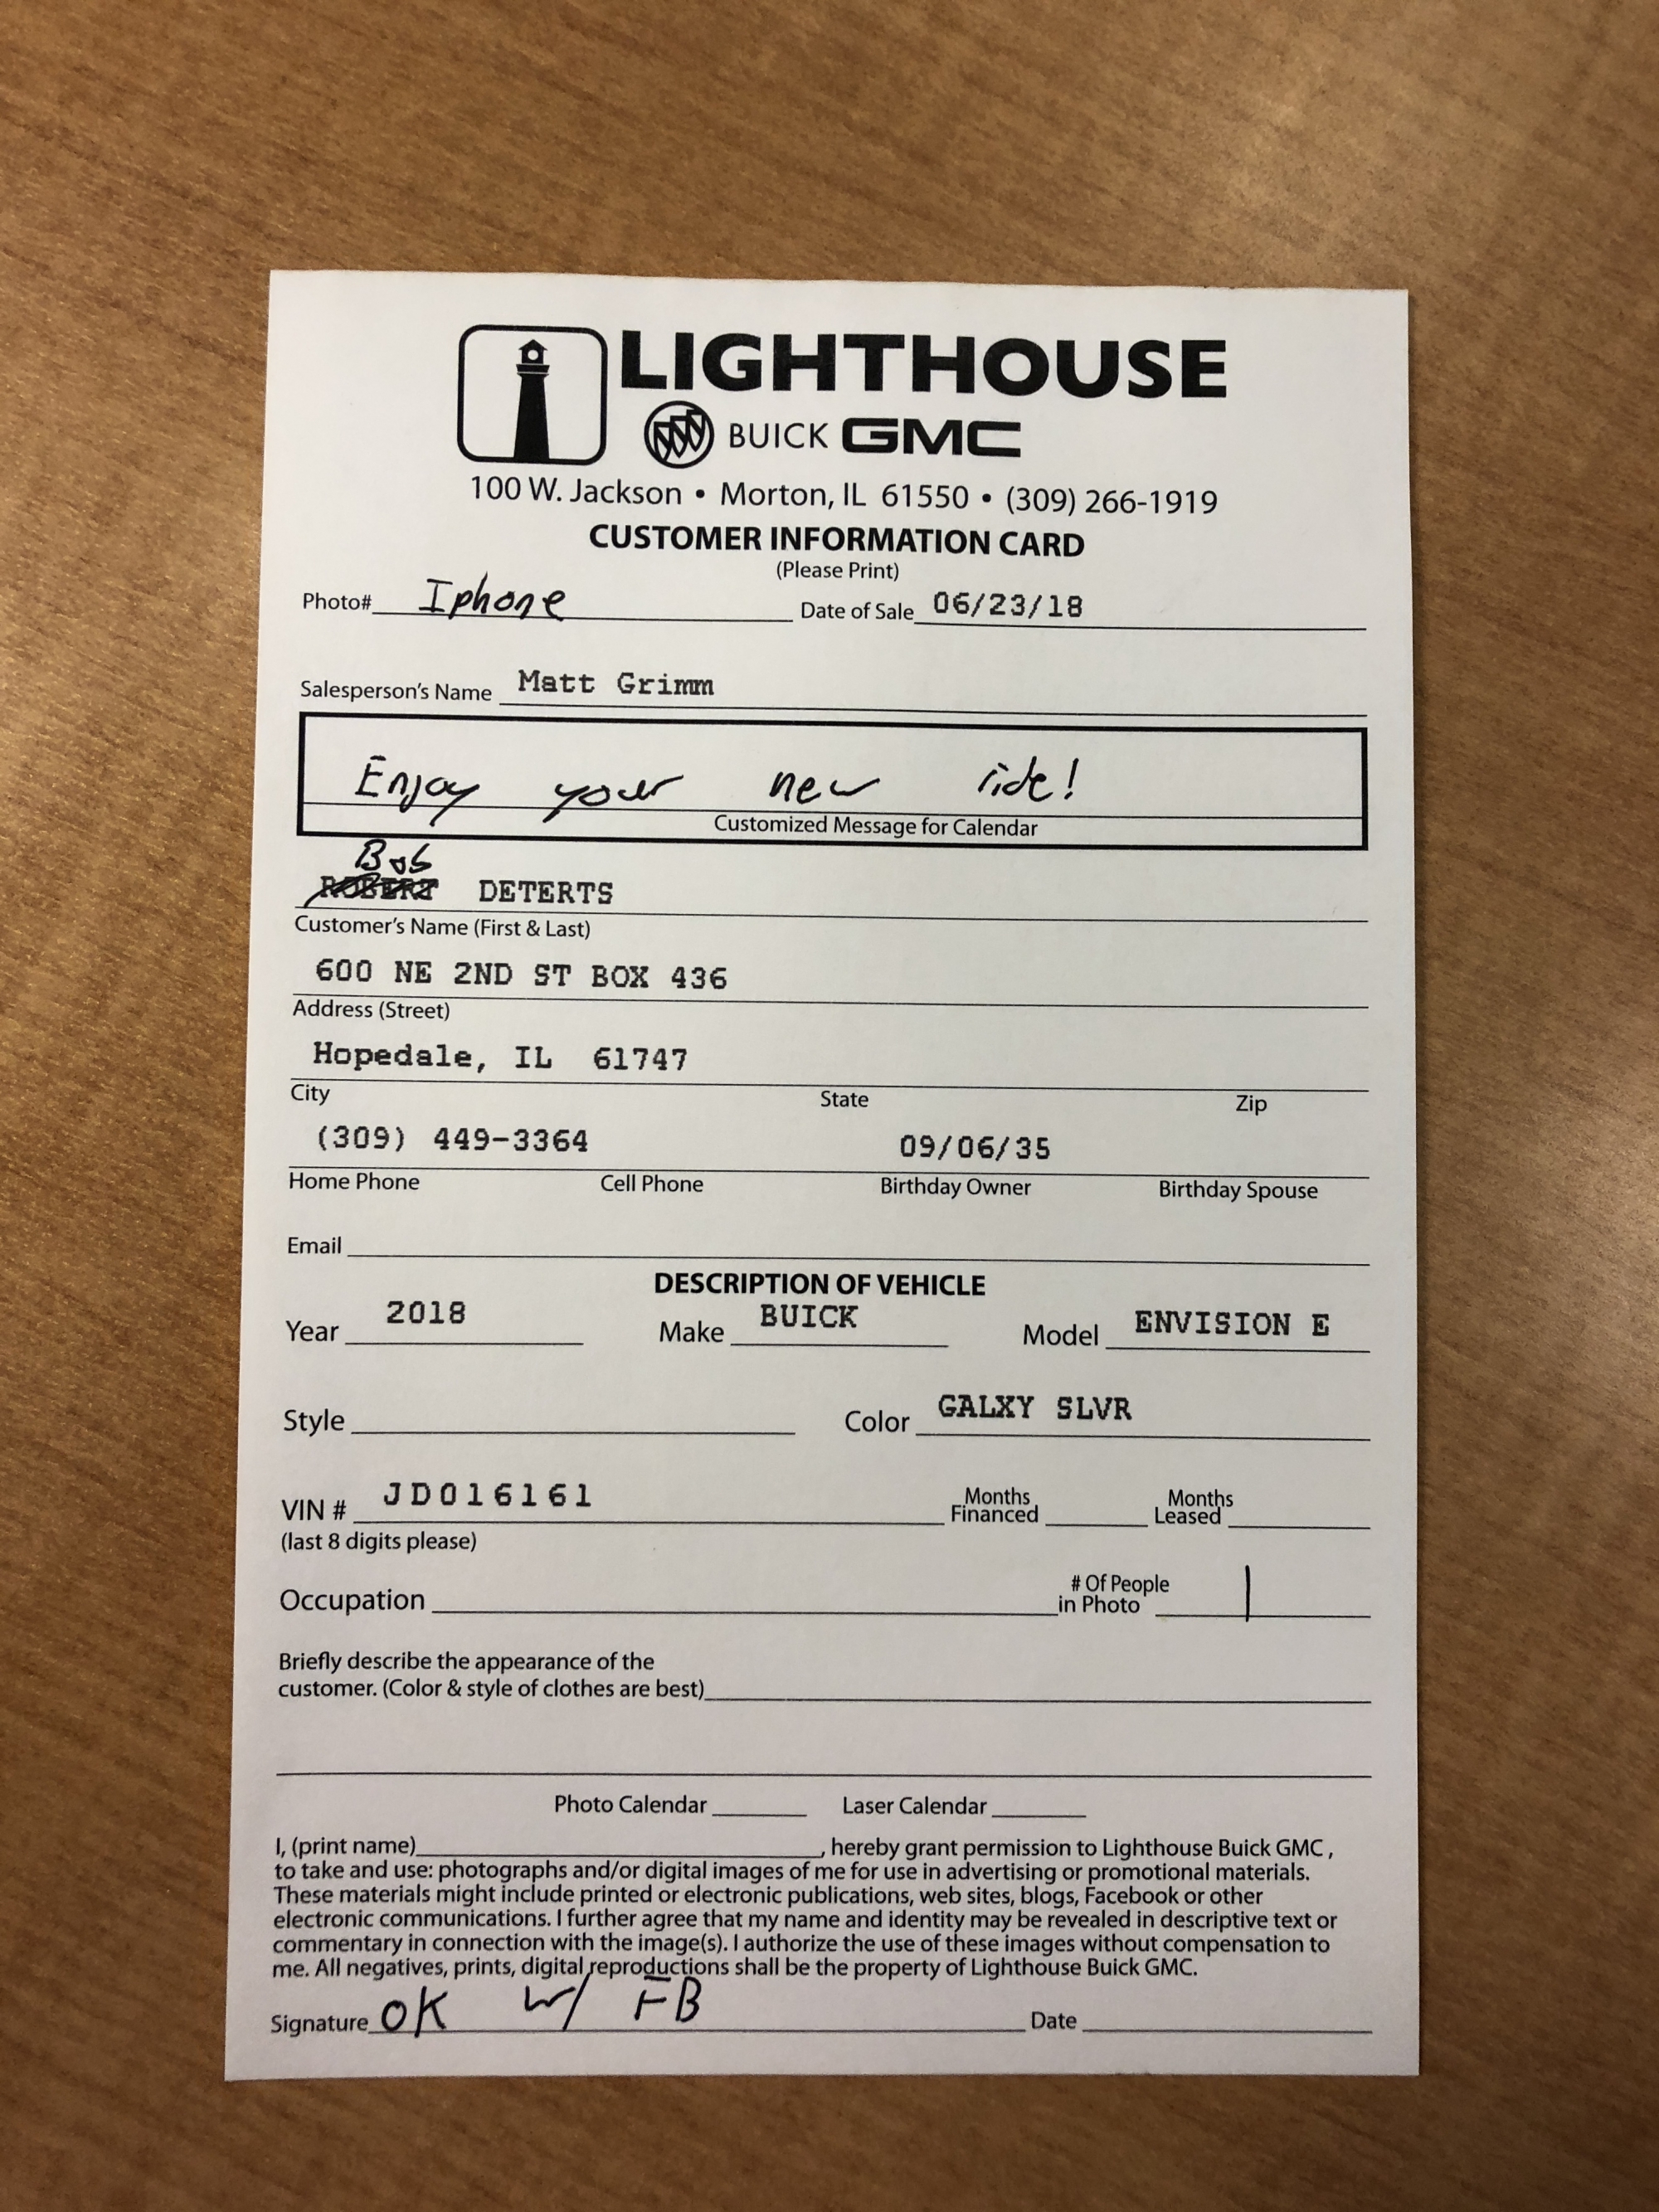 LIGHTHOUSE
BUICK GMC
100 W. Jackson • Morton, IL 61550 • (309) 266-1919
CUSTOMER INFORMATION CARD
(Please Print)
Photo# Iphone Date of Sale 06/23/18
Salesperson's Name Matt Grimm
Enjoy your new ride!
Customized Message for Calendar
Bob
ROBERT DETERTS
Customer's Name (First & Last)
600 NE 2ND ST BOX 436
Address (Street)
Hopedale, IL 61747
City State Zip
(309) 449-3364 09/06/35
Home Phone Cell Phone Birthday Owner Birthday Spouse
Email
DESCRIPTION OF VEHICLE
Year 2018 Make BUICK Model ENVISION E
Style Color GALXY SLVR
VIN # JD016161 Months Financed Months Leased
(last 8 digits please)
Occupation # Of People in Photo 1
Briefly describe the appearance of the
customer. (Color & style of clothes are best)
Photo Calendar Laser Calendar
I, (print name) , hereby grant permission to Lighthouse Buick GMC ,
to take and use: photographs and/or digital images of me for use in advertising or promotional materials.
These materials might include printed or electronic publications, web sites, blogs, Facebook or other
electronic communications. I further agree that my name and identity may be revealed in descriptive text or
commentary in connection with the image(s). I authorize the use of these images without compensation to
me. All negatives, prints, digital reproductions shall be the property of Lighthouse Buick GMC.
Signature OK w/ FB Date